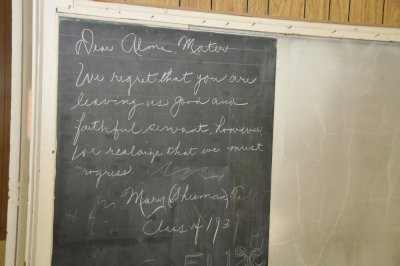 Dear Alma Mater
We regret that you are
leaving us good and
faithful servant. however
We realize that we must
progress.
Mary (Shuman)
Class of 193